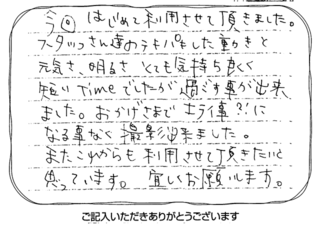 今回 はじめて利用させて頂きました。
スタッフさん達のテキパキした動きと
元気さ、明るさ とても気持ち良く
短い Timeでしたが過ごす事が出来
ました。おかげさまで 大事??に
なる事なく撮影出来ました。
またこれからも利用させて頂きたいと
思っています。 宜しくお願いします。
ご記入いただきありがとうございます